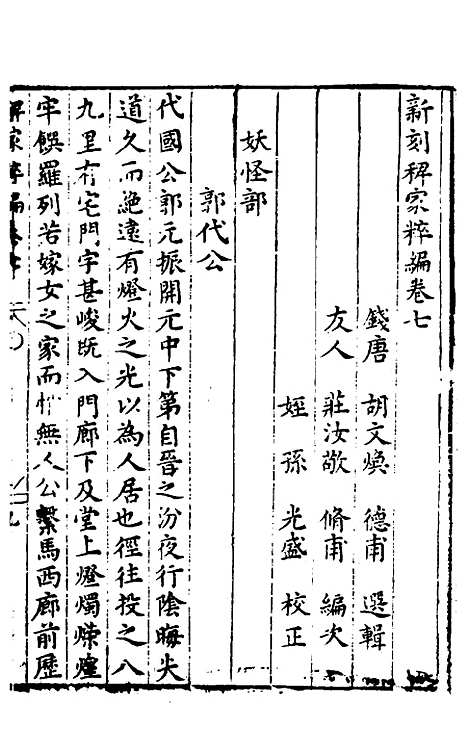 新刻稗家粹編卷七
錢唐 胡文煥 德甫 選輯
友人 莊汝敬 脩甫 編次
姪孫 光盛 校正
妖怪部
郭代公
代國公郭元振開元中下第自晉之汾夜行陰晦失
道久而絶遠有燈火之光以為人居也徑往投之八
九里有宅門宇甚峻既入門廊下及堂上燈燭熒煌
牢饌羅列若嫁女之家而悄無人公繫馬西廊前歷